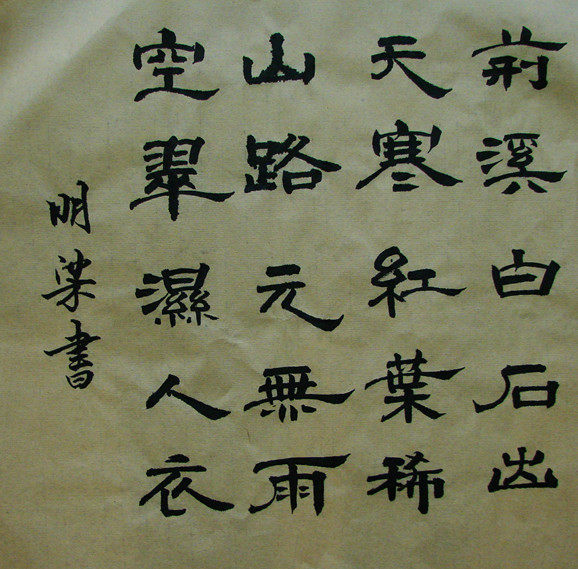 荊溪白石出
天寒紅葉稀
山路元無雨
空翠濕人衣
明梁書